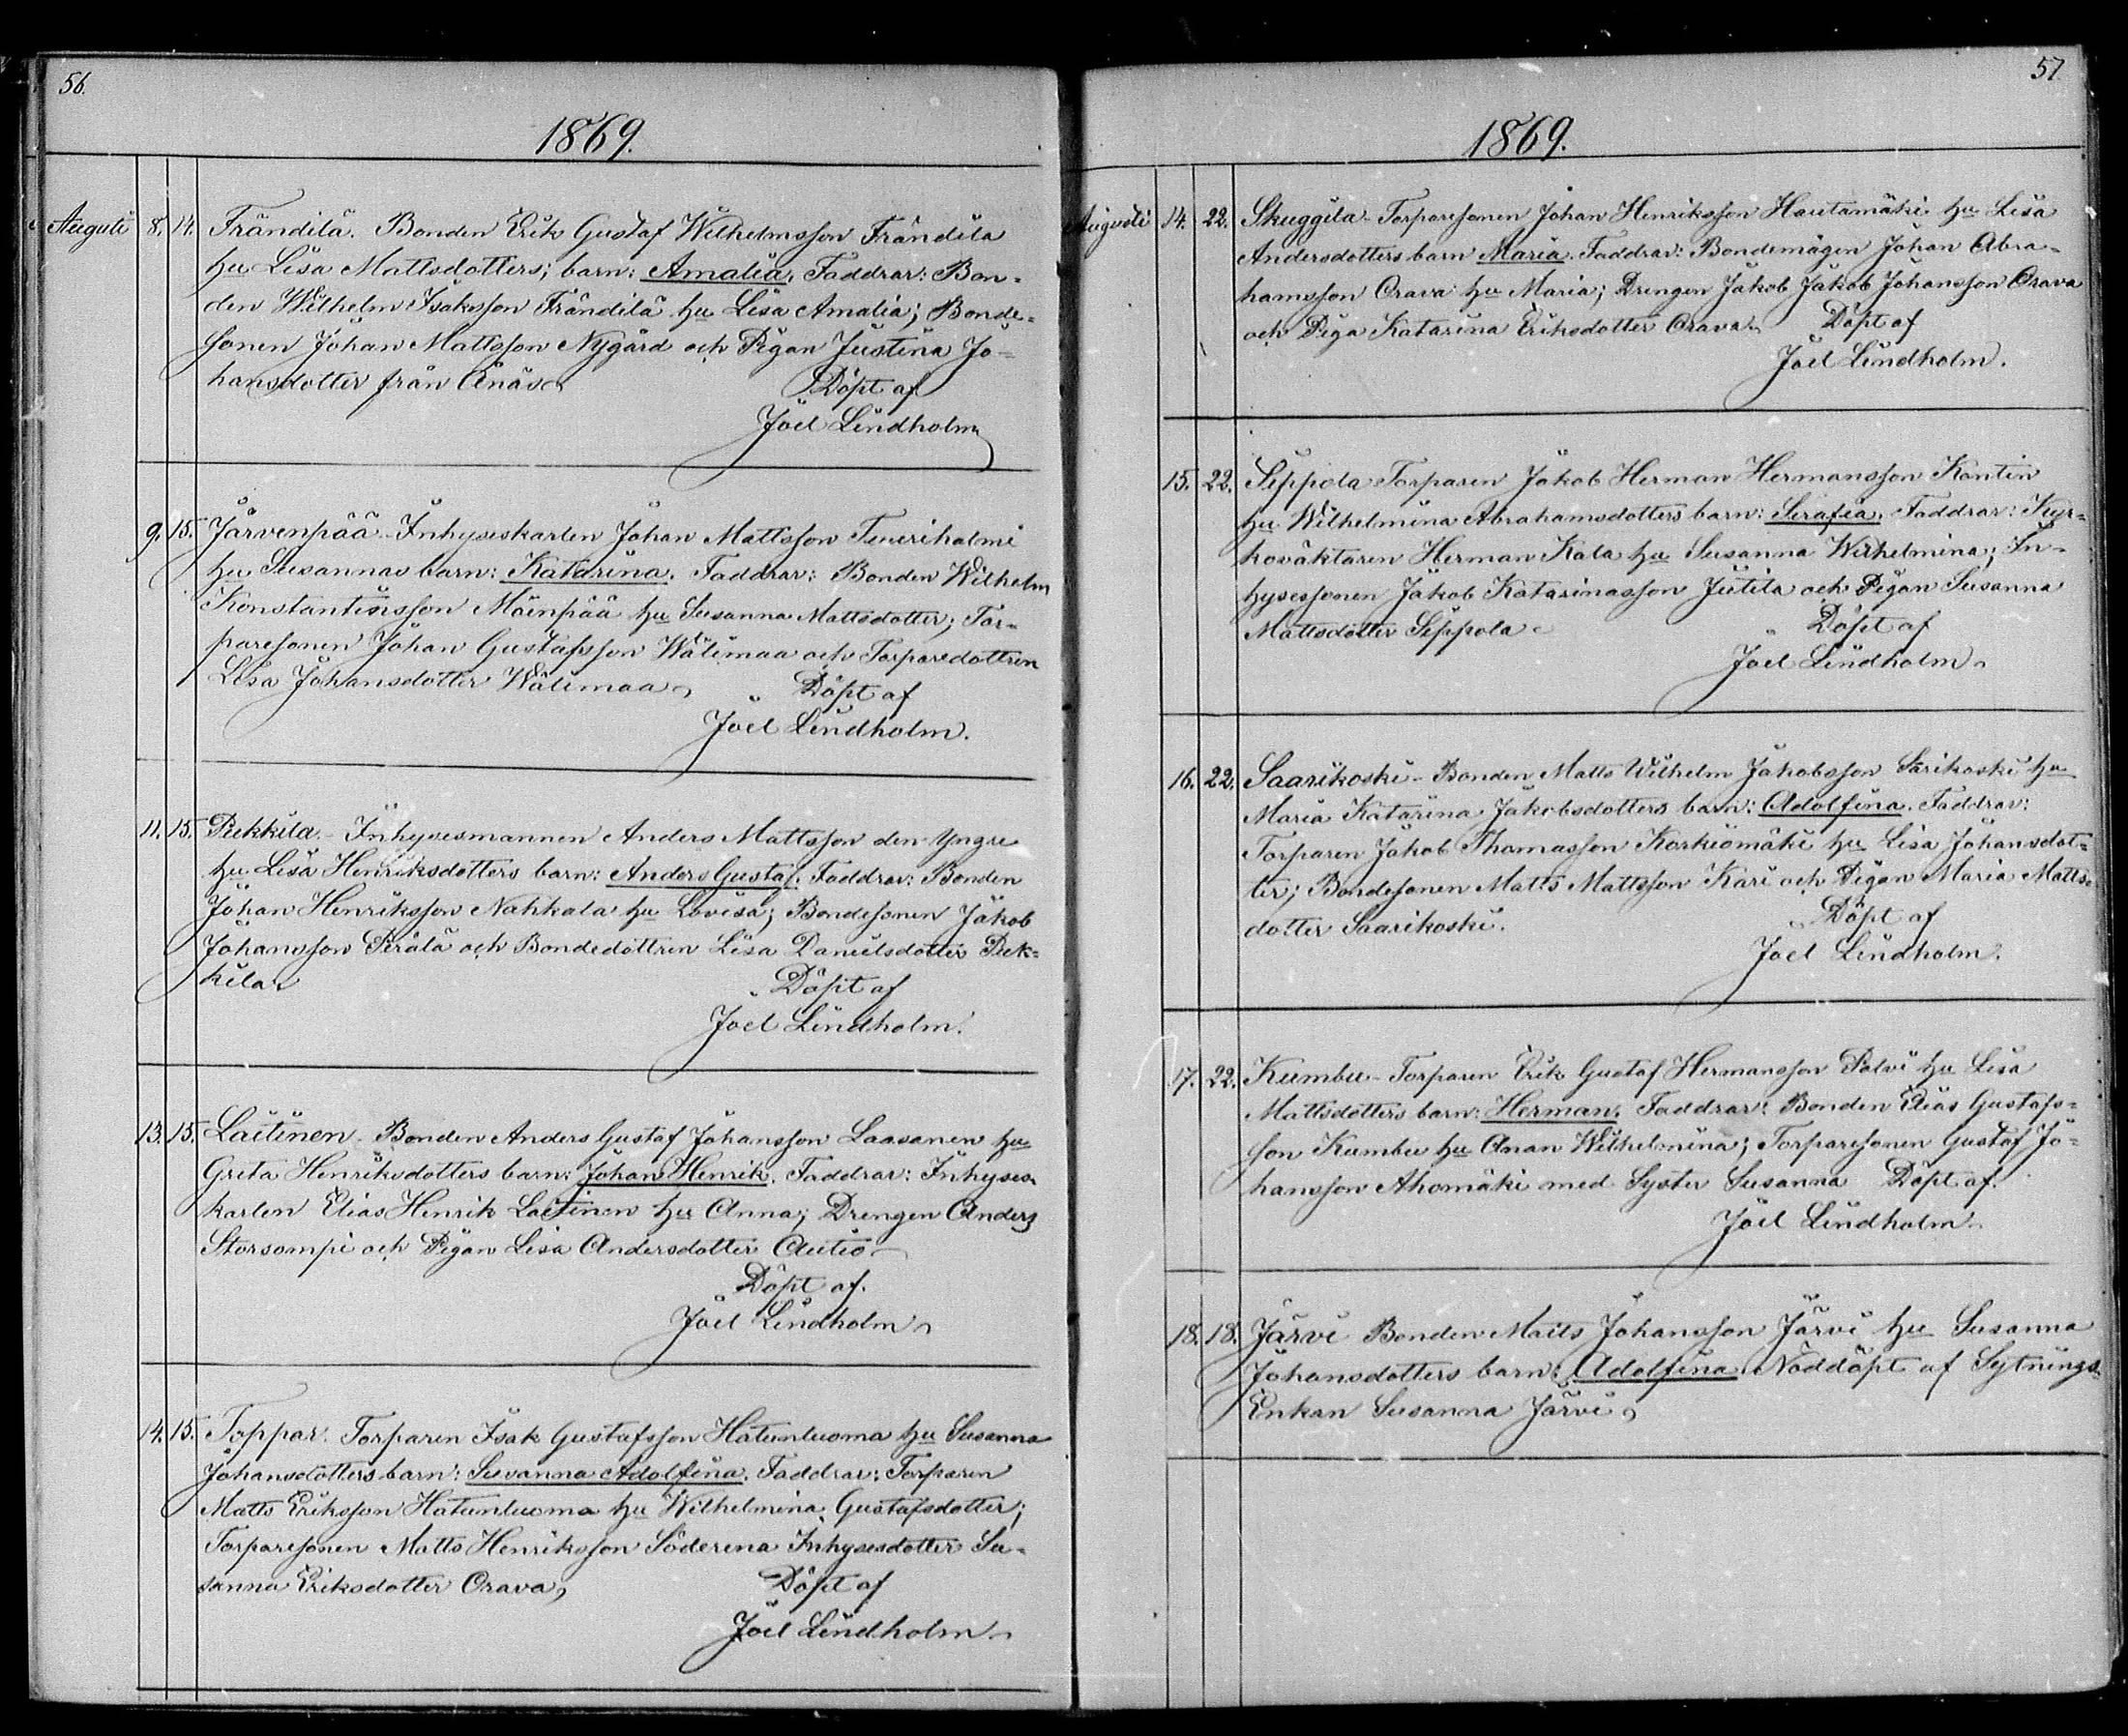 56.
1869.
Auguti 8. 14. Frändilä. Bonden Erik Gustaf Wilhelmsson Frändilä
hu Lisa Mattsdotters; barn: Amalia. Faddrar: Bon-
den Wilhelm Isaksson Frändilä hu Lisa Amalia; Bonde-
sonen Johan Mattsson Nygård och Pigan Justina Jo-
hansdotter från Ånäs. Döpt af
Joel Lindholm
9. 15. Järvenpää. Inhyseskarlen Johan Mattsson Teuriholmi
hu Susannas barn: Katarina. Faddrar: Bonden Wilhelm
Konstantinsson Mäenpää hu Susanna Mattsdotter; Tor-
paresonen Johan Gustafsson Wälimaa och Torparedottren
Lisa Johansdotter Wälimaa Döpt af
Joel Lindholm.
11. 15. Pukkila. Inhysesmannen Anders Mattsson den yngre
hu Lisa Henriksdotters barn: Anders Gustaf. Faddrar: Bonden
Johan Henriksson Nahkala hu Lovisa; Bondesonen Jakob
Johansson Perälä och Bondedottren Lisa Danielsdotter Puk-
kila Döpt af
Joel Lindholm.
13. 15. Laitinen. Bonden Anders Gustaf Johansson Laasanen hu
Greta Henriksdotters barn: Johan Henrik. Faddrar: Inhyses-
karlen Elias Henrik Laitinen hu Anna; Drengen Anders
Storsompi och Pigan Lisa Andersdotter Autio
Döpt af.
Joel Lindholm
14. 15. Toppar. Torparen Isak Gustafsson Hatunluoma hu Susanna
Johansdotters barn: Susanna Adolfina. Faddrar: Torparen
Matts Eriksson Hatunluoma hu Wilhelmina Gustafsdotter;
Torparesonen Matts Henriksson Söderena Inhysesdotter Su-
sanna Eriksdotter Orava, Döpt af
Joel Lindholm
57
1869.
Augusti 14. 22. Skuggila - Torparesonen Johan Henriksson Hautamäki hu Lisa
Andersdotters barn Maria. Faddrar: Bondemågen Johan Abra-
hamsson Orava hu Maria; Drengen Jakob Jakob Johansson Orava
och Piga Katarina Eriksdotter Orava. Döpt af
Joel Lindholm.
15. 22. Seppola Torparen Jakob Herman Hermansson Kontin
hu Wilhelmina Abrahamsdotters barn: Serafia. Faddrar: Kyr-
koväktaren Herman Kala hu Susanna Wilhelmina; In-
hysessonen Jakob Katarinasson Jutila och Pigan Susanna
Mattsdotter Seppola Döpt af
Joel Lindholm
16. 22. Saarikoski - Bonden Matts Wilhelm Jakobsson Sarikoski hu
Maria Katarina Jakobsdotters barn: Adolfina. Faddrar:
Torparen Jakob Thomasson Korkiomäki hu Lisa Johansdot-
ter; Bondesonen Matts Mattsson Kari och Pigan Maria Matts-
dotter Saarikoski. Döpt af
Joel Lindholm.
17. 22. Kumbu - Torparen Erik Gustaf Hermansson Palvi hu Lisa
Mattsdotters barn: Herman. Faddrar: Bonden Elias Gustafs-
son Kumbu hu Anan Wilhelmina; Torparesonen Gustaf Jo-
hansson Ahomäki med Syster Susanna Döpt af.
Joel Lindholm.
18. 18. Järvi Bonden Matts Johansson Järvi hu Susanna
Johansdotters barn: Adolfina. Nöddöpt af Sytnings-
Enkan Susanna Järvi,